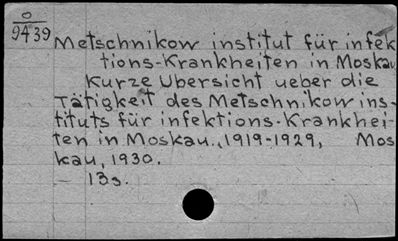 O
9439
Metschnikow institut für infek
tions-Krankheiten in Moskau
Kurze Ubersicht ueber die
Tätigkeit des Metschnikow ins-
tituts für infektions-Krankhei-
ten in Moskau., 1919-1929, Mos
kau, 1930.
— 13s.